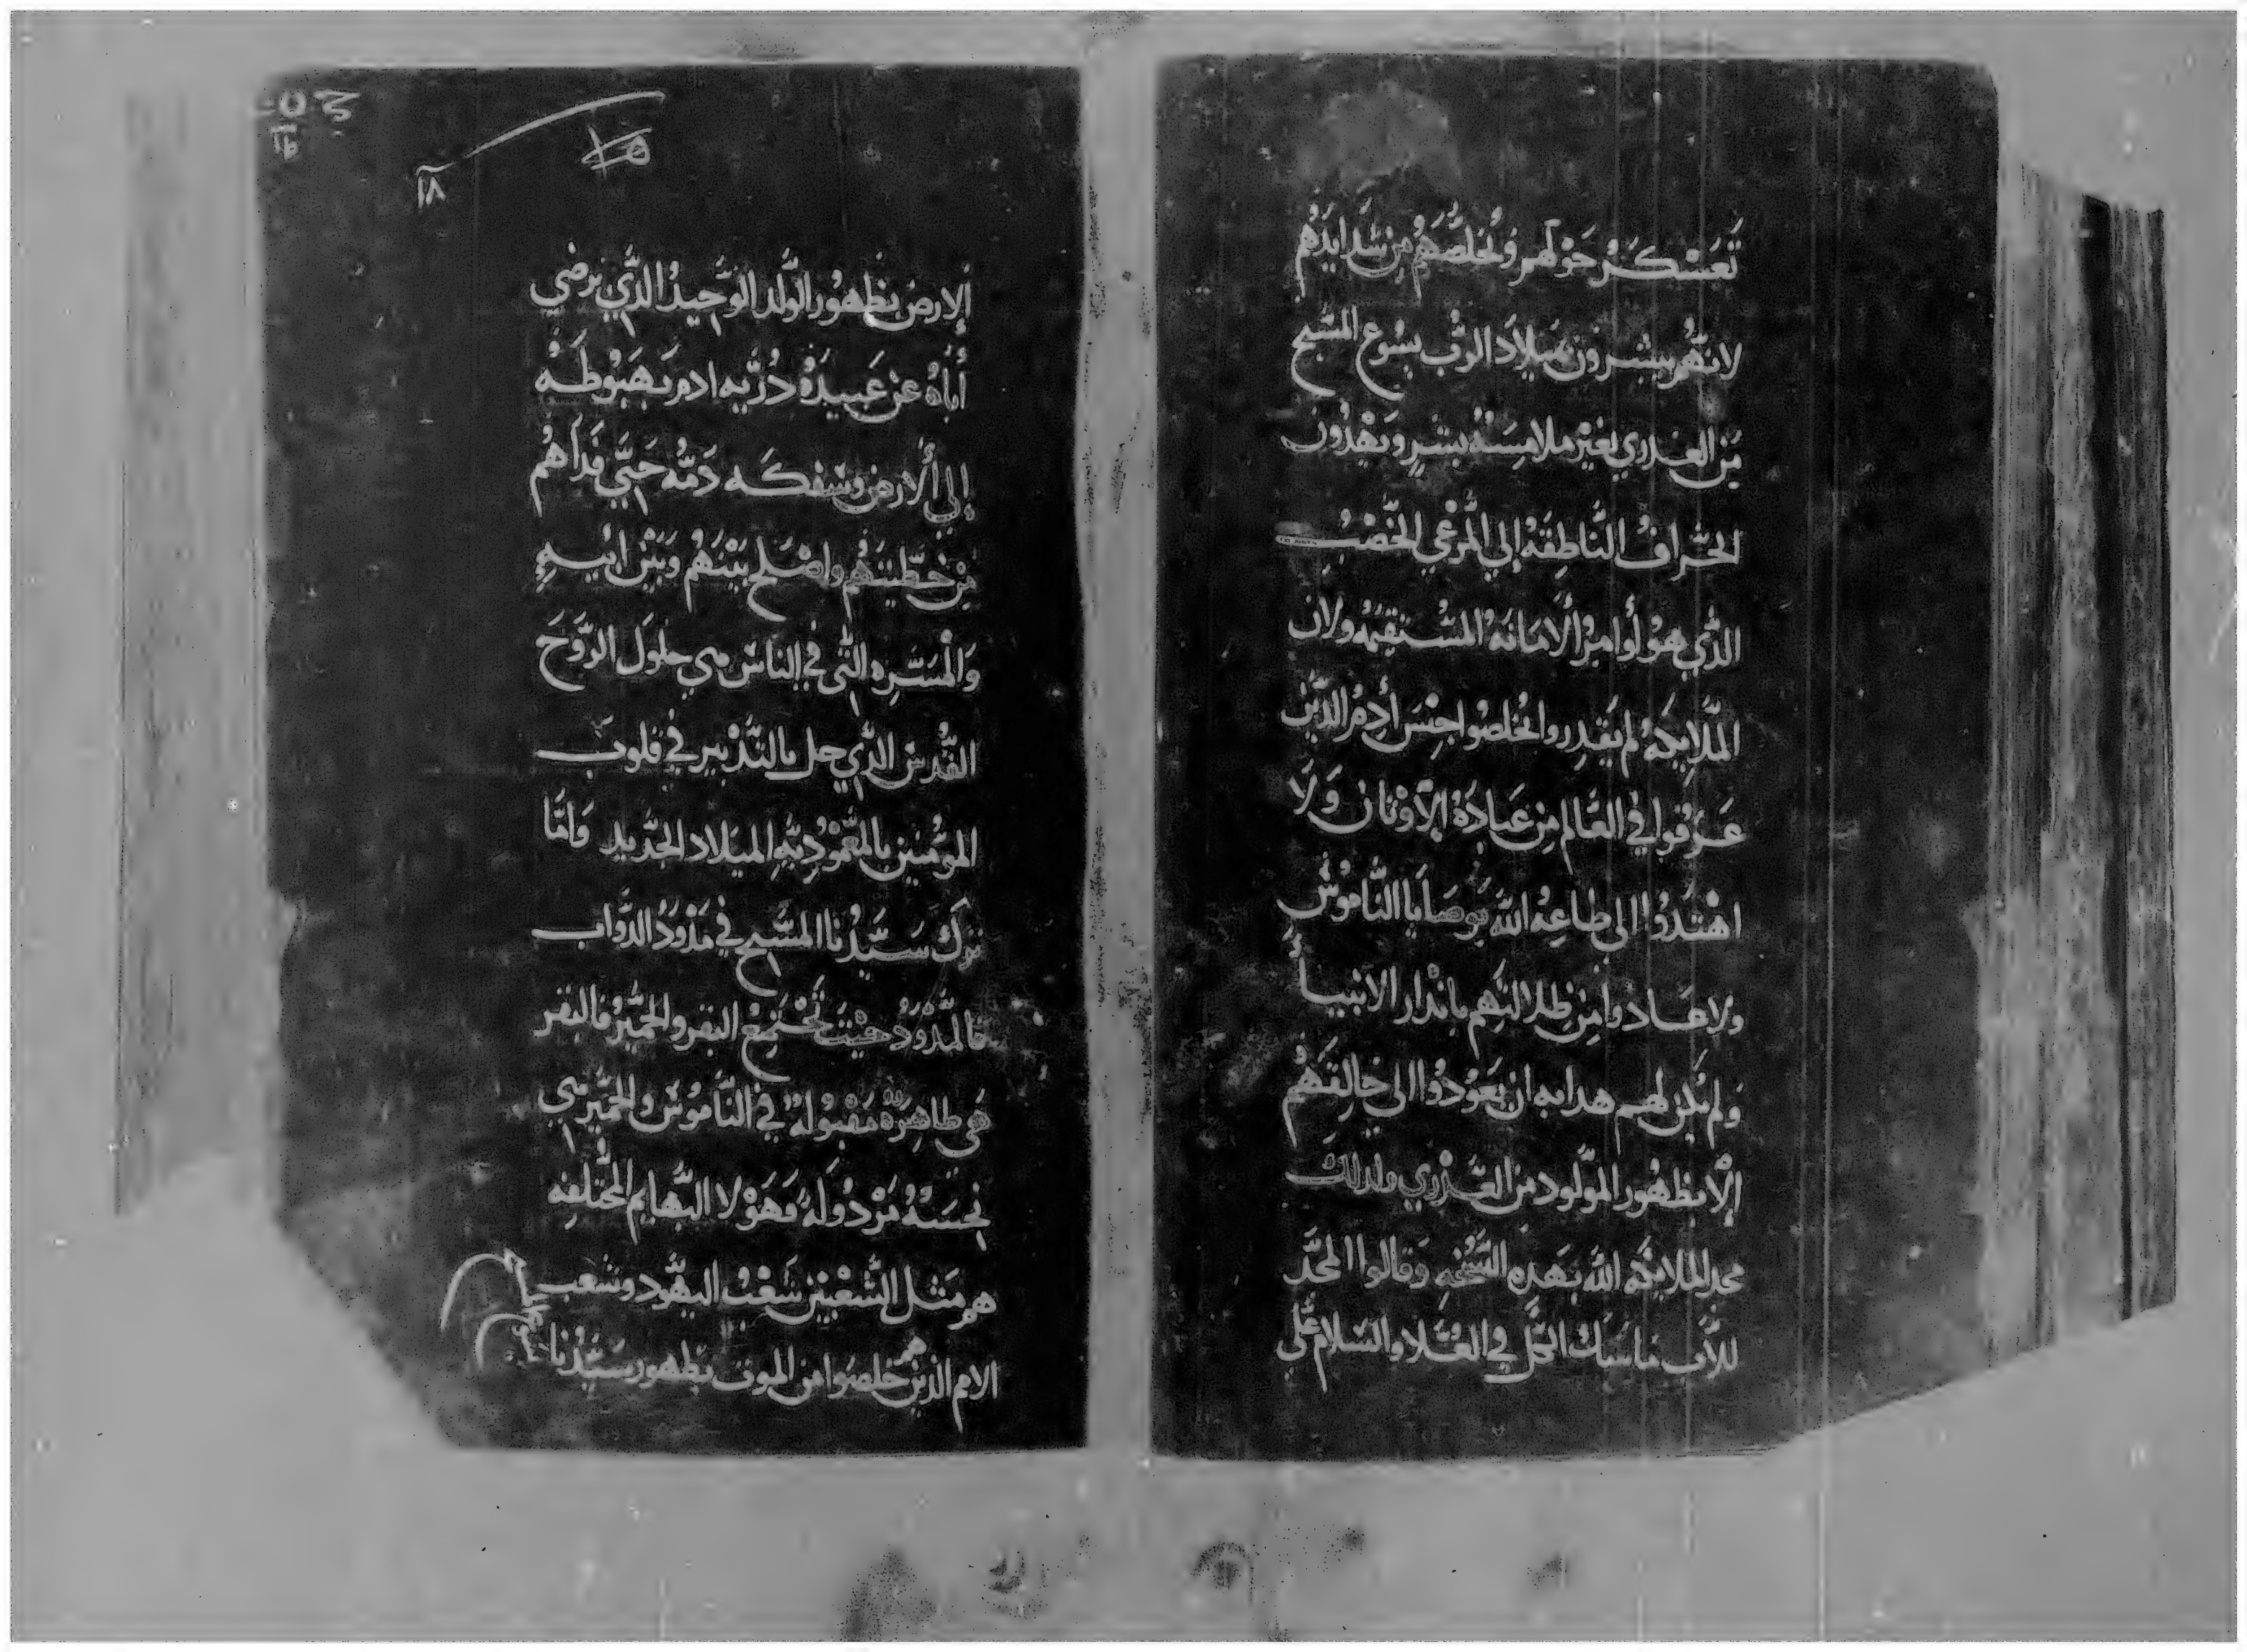 تَعَسْكَرُ حَوْلَهم وتُخلصُّهَمُ مِن شَدَايدُهم
لانهُّم يبشرون بميلاَدَ الربُّ يسُوع المسَّيح
مَن العدري بغيْر ملامِسَة بشرٍ ويَهْدُون
الخرافُ النَّاطِقهْ إلي المَّرعْي الخَّصْبُ
الذَّي هوُ أوامرُ الأمَانهَ المسُتقيمهْ ولان
الملَّايكهُ لم يَقدِروا يُخلصوُا جِنسَ أَدمُ الدَّين
غَرَقوا في العَّالم مِن عَبادَةُ الأَوْثان وَلَا
اهْتدَوُا الي طاعِةُ اللهَّ بوَصَايَا النَّاموُسُ
ولا عَادوا مِن ظلالتهِم بانْدار الانبيَا
وَلم يكَن لهم هدايه ان يَعَوُدُوا الي خالِقهُم
إلاَّ بظهُور الموَّلود من العَدْري ولدلك
مجد الملايكَة اللهَ بهَدِه التسَّبحِه وَقالوا المجَّد
للأَّب ماسَك الكَّل في العُلا والسَلام عَلَي
ألارض بظهُور الوَّلد الوَّحِيدُ الذَّي يَرضي
أبَاهُ عَن عَبيدَهُ ذُرّيه ادم بَهَبوُطهَ
إلي ألأرض وسَفكه دَمُّه حَتيَّ فدَاهُم
مِن خطّيتهَم واصْلح بَيْنَهُم وَبَيْن ابيهِ
وَالمْسَّره التي في الناسَ هي حلوَل الروَّحَ
القُدسَ الذَّي حل بالتَّدْبير في قلوبَ
الموُّمنين بالمَعْموُديَّهِ الميَلاد الجدَّيد وَامَّا
تَرَك سَيَّدُنا المسَّيح في مَدْوَدُ الدَّواب
فالمَّدْوَدُ حَيْثَ تُجَتمعْ البقر والحمَّيرُ فالبقر
هَي طاهِرةٌ مَقبْوُلهٌ في النَّاموُس والحمَّير هي
نَجسَهُ مَرْدُولَهُ وَهَوْلا البَّهايم المختَّلفِه
هم مَثَل الشَّعْبَيْن شَعْبُ اليهَّود وشعب
الامم الذين هم خلصَوا من الموت بظهور سَيّدُنا